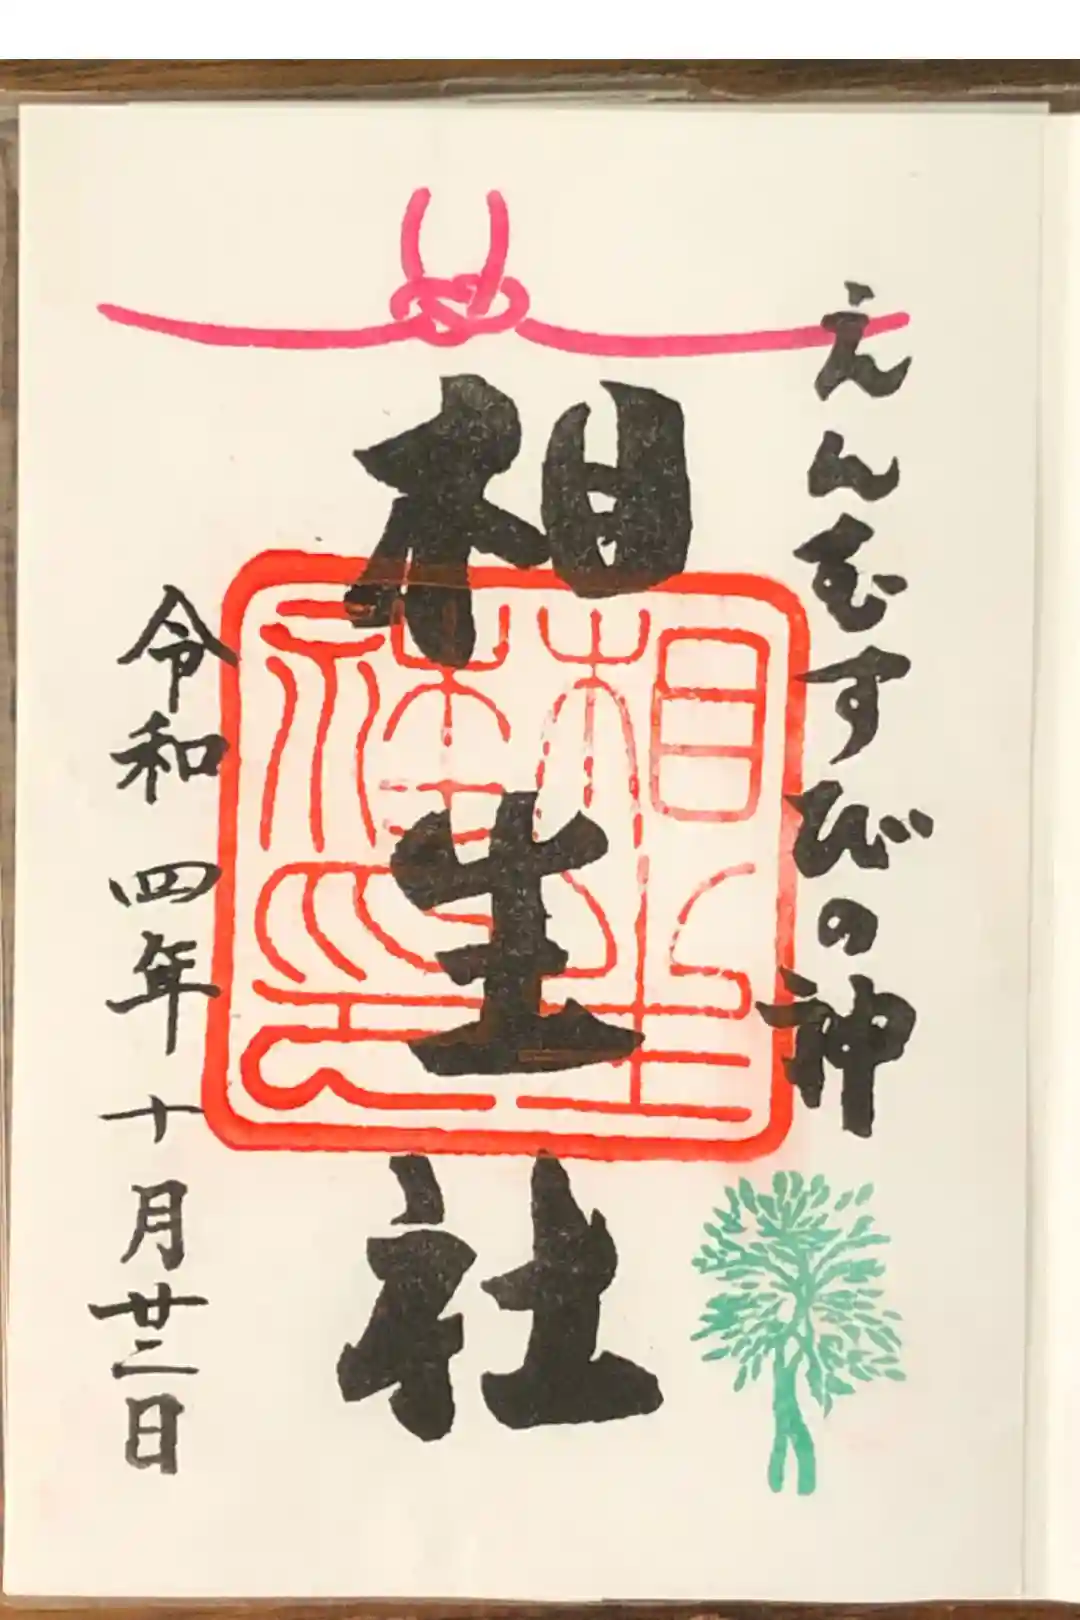 えんむすびの神
相生社
相生社神印
令和四年十月廿二日